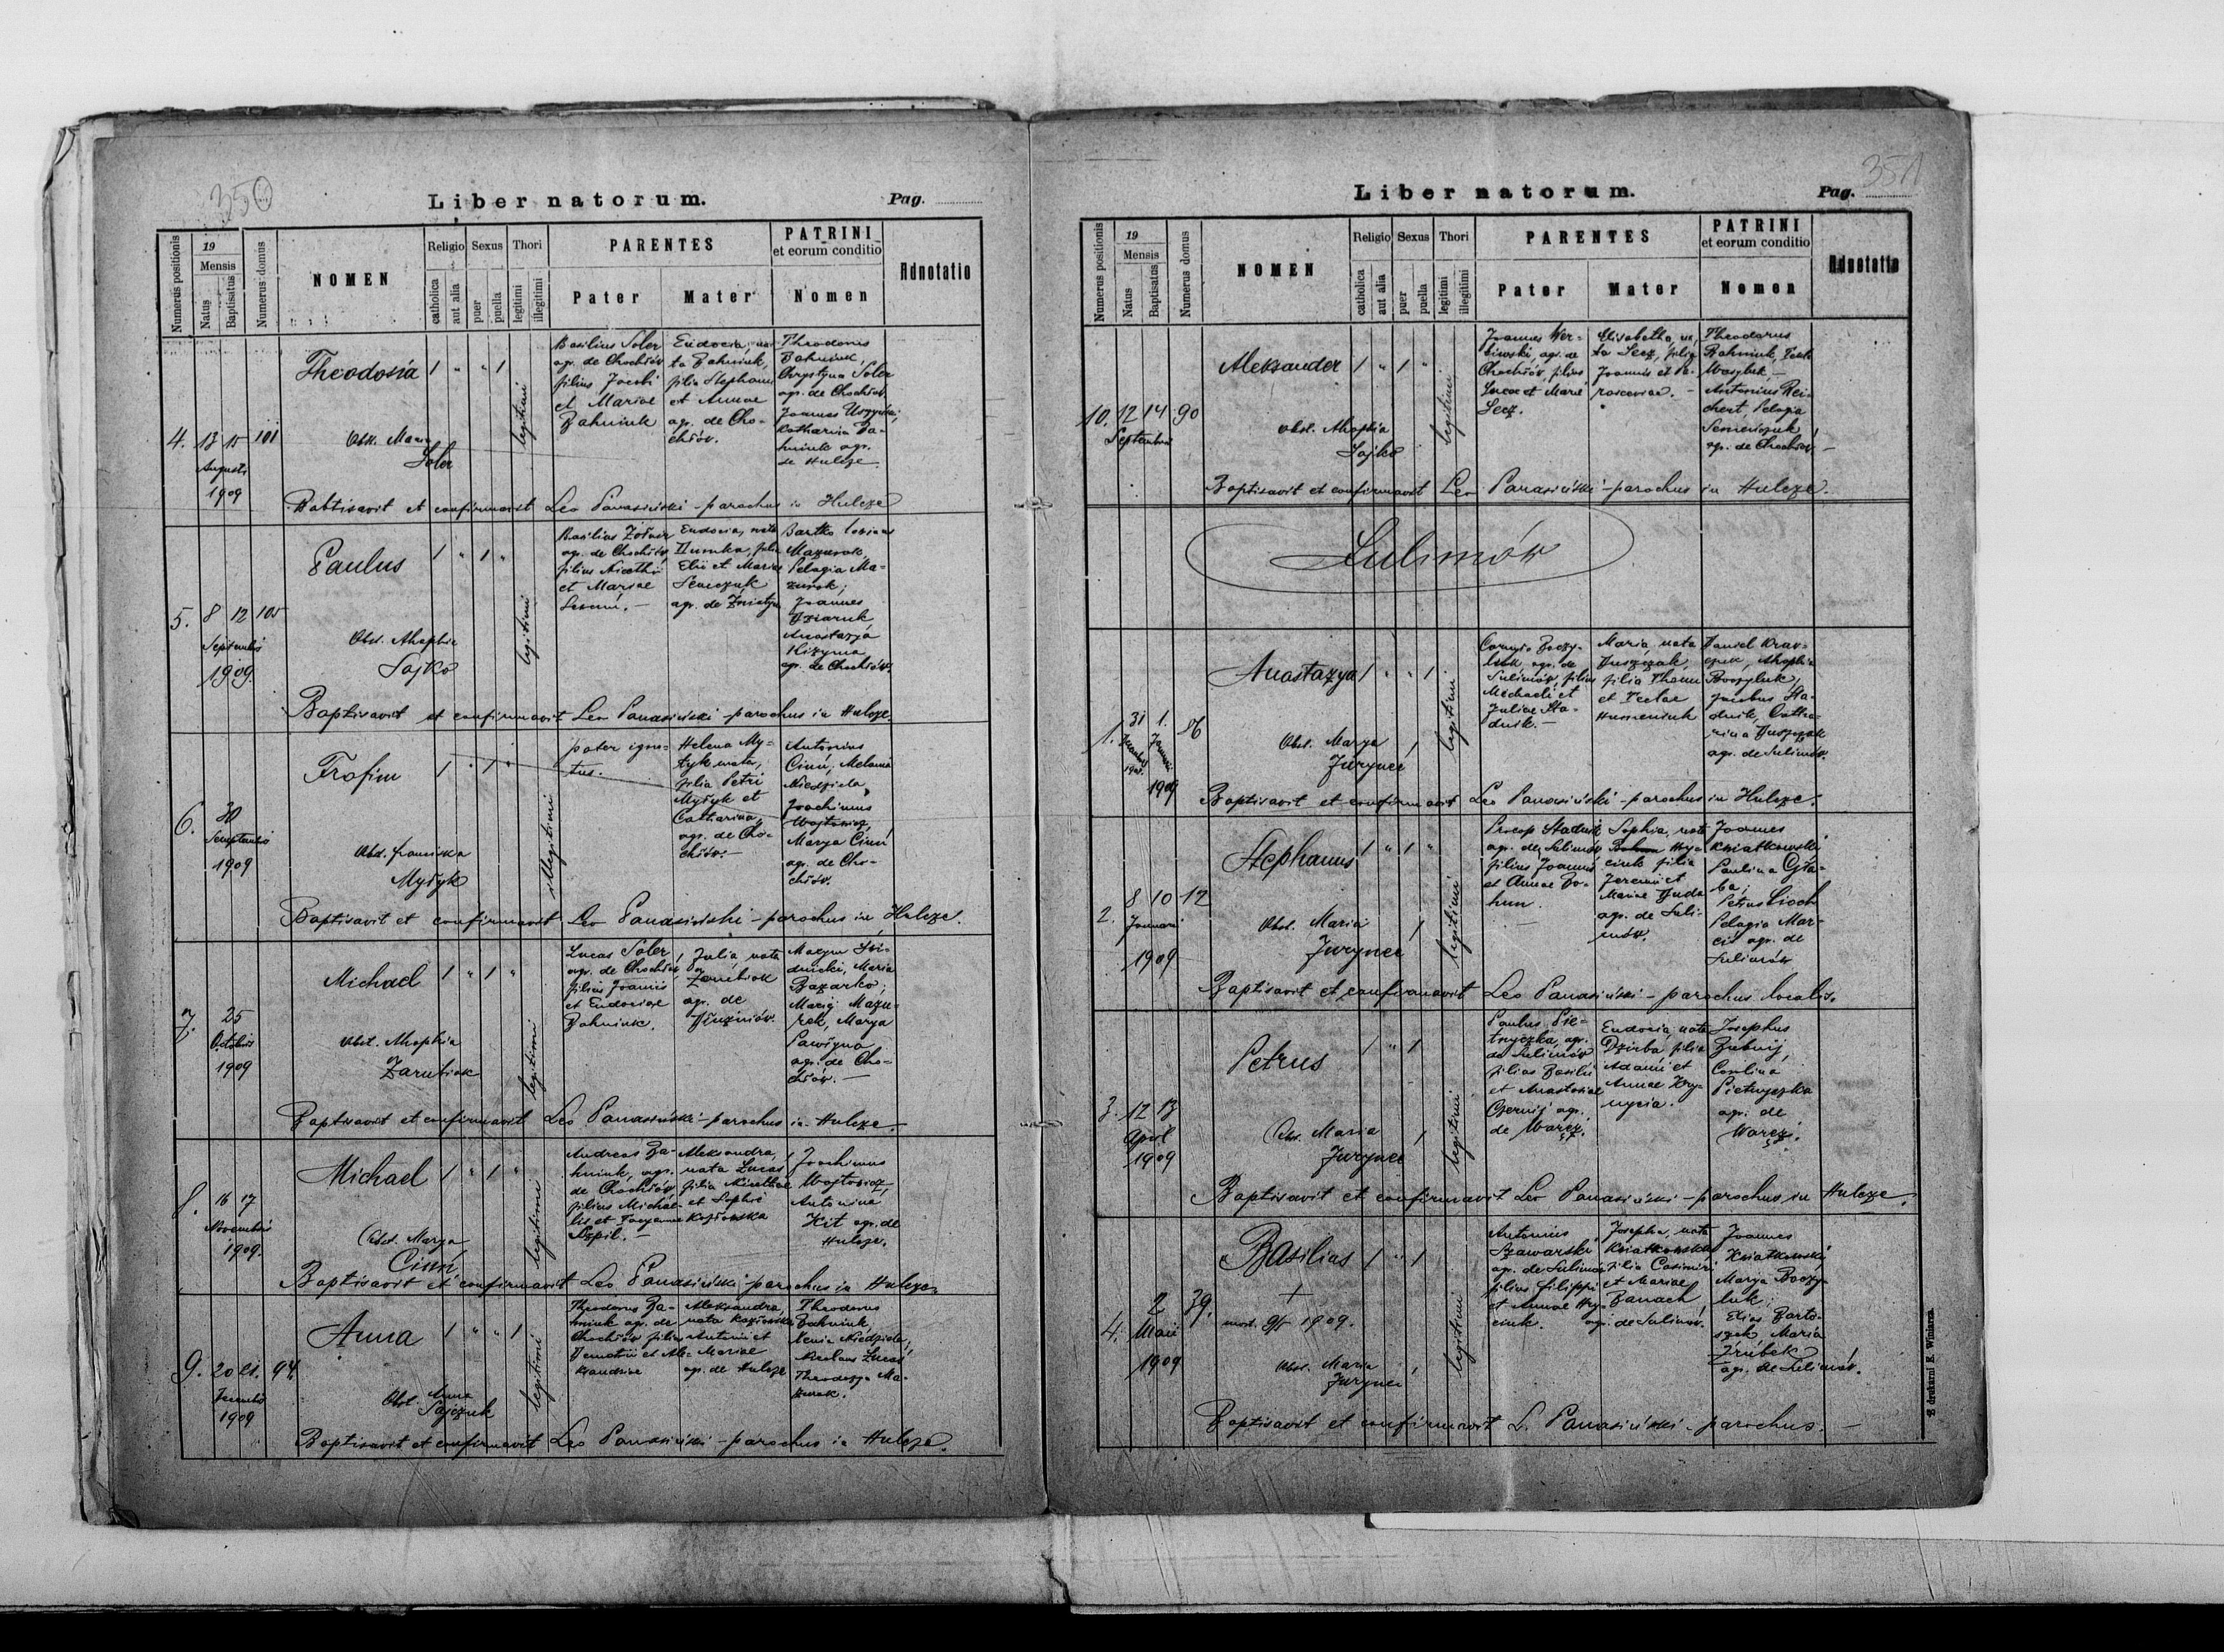 350
Liber natorum.
Pag.
Numerus positionis
19
Mensis
Natus
Baptisatus
Numerus domus
NOMEN
Religio
catholica
aut alia
Sexus
puer
puella
Thori
legitimi
illegitimi
PARENTES
Pater
Mater
PATRINI
et eorum conditio
Nomen
Adnotatio
4. 13 15 101
Augusti
1909
Theodosia 1 " " 1
legitimi
Obst. Maria
Soler
Basilius Soler
agr. de Chochłów
filius Jacobi
et Mariae
Bahniuk
Eudocia, na
ta Bahniuk,
filia Stephani
et Annae
agr. de Cho-
chłów.
Theodorus
Bahniuk,
Chrystyna Soler
agr. de Chochłów
Joannes
Katharina Ba-
hniuk agr.
de Hulcze.
Babtisavit et confirmavit Leo Panasiński - parochus in Hulcze
5. 8 12 105
Septembris
1909.
Paulus 1 " 1 "
legitimi
Obst. Ahaphia
Sajko
Basilius Żołnir
agr. de Chochłów
filius
et Mariae
Eudocia, nata
Dumka, filia
Elii et Mariae
Senczuk
agr. de Żniatyn
Bartko
Mazurok,
Pelagia Ma-
zurok;
Joannes
Dziaruk,
Anastazya
Hizyma
agr. de Chochłów.
Baptisavit et confirmavit Leo Panasiński - parochus in Hulcze
6. 30
Septembris
1909
Trofim 1 " 1 "
illegitimi
Obst. Franciska
Myłyk
pater igno-
tus.
Helena My-
łyk nata,
filia Petri
Myłyk et
Catharina,
agr. de Cho-
chłów.
Antonius
Ciuń, Melania
Niedziela,
Joachimus
Wojtowicz,
Marya Ciuń
agr. de Cho-
chłów.
Baptisavit et confirmavit Leo Panasiński - parochus in Hulcze.
7. 25
Octobris
1909
Michael 1 " 1 "
legitimi
Obst. Ahaphia
Zarubiak
Lucas Soler,
agr. de Chochłów,
filius Joannis
et Eudociae
Bahniuk.
Julia, nata
Zarubiak
agr. de
Dłużniów.
Maxym
Maria
Bazarko;
Mazu-
rek, Marya
agr. de Cho-
chłów. -
Baptisavit et confirmavit Leo Panasiński - parochus in Hulcze. -
8. 16 17
Novembris
1909.
Michael 1 " 1 "
legitimi
Obst. Marya
Ciuń
Andreas Ba-
hniuk, agr.
de Chochłów
filius Michae-
lis et
Szpil. -
Aleksandra,
nata Lucas
filia
et Sophie
Kozłowska
Joachimus
Wojtowicz,
Antonina
Kit agr. de
Hulcze.
Baptisavit et confirmavit Leo Panasiński - parochus in Hulcze.
9. 20 21. 94.
Decembris
1909
Anna 1 " " 1
legitimi
Obst. Anna
Sajczuk
Theodorus Ba-
hniuk agr. de
Chochłów filius
Demetrii et Ale-
xandrae
Aleksandra,
nata Kozłowska
Antonii et
Mariae
agr. de Hulcze
Theodorus
Bahniuk,
Xenia Niedziela;
Nicolaus Lucas,
Theodozya Ma-
zurok.
Baptisavit et confirmavit Leo Panasiński - parochus in Hulcze.
351
Liber natorum.
Pag.
Numerus positionis
19
Mensis
Natus
Baptisatus
Numerus domus
NOMEN
Religio
catholica
aut alia
Sexus
puer
puella
Thori
legitimi
illegitimi
PARENTES
Pater
Mater
PATRINI
et eorum conditio
Nomen
Adnotatio
10. 12 14 90
Septembris
Aleksander 1 " 1 "
legitimi
Obst. Ahaphia
Sajko
Joannes Wer-
biwski, agr. de
Chochłów, filius
Lucae et Marie
Secz.
Elisabetha, na-
ta Secz, filia
Joannis et Pa-
rasceviae. -
Theodorus
Bahniuk,
Wasyluk, -
Antonius Rei-
chert, Pelagia
Semeniuk,
agr. de Chochłów. -
Baptisavit et confirmavit Leo Panasiński - parochus in Hulcze.
Sulimów
1. 31 1. 86
Decembris Januarii
1908. 1909
Anastazya 1 " " 1
legitimi
Obst. Marya
Jurynec
agr. de
Sulimów, filius
Michaeli et
Juliae Sta-
dnik. -
Maria, nata
Duszczak,
filia Thomae
et Teclae
Humeniuk
Daniel Kraw-
czuk, Ahaphia
Boozyluk;
Jacobus Sta-
dnik, Catha-
rina Duszczak
agr. de Sulimów.
Baptisavit et confirmavit Leo Panasiński - parochus in Hulcze.
2. 8 10 12
Januarii
1909
Stephanus 1 " 1 "
legitimi
Obst. Maria
Jurynec
Procop Stadnik
agr. de Sulimów
filius Joannis
et Annae Bo-
hun.
Sophia, nata
Hry-
ciuk filia
Jeremii et
Mariae Duda
agr. de Suli-
mów.
Joannes
Kwiatkowski
Paulina
Petrus Lioch
Pelagia Mar-
agr. de
Sulimów
Baptisavit et confirmavit Leo Panasiński - parochus localis.
3. 12 13
April
1909
Petrus 1 " 1
legitimi
Obst. Maria
Jurynec
Paulus Pie-
tryczka, agr.
de Sulimów
filius Basilii
et Anastasiae
Czernij agr.
de Waręż.
Eudocia, nata
Dziuba, filia
Adami et
Annae Hry-
nycia.
Josephus
Carolina
Pietryczka
agr. de
Waręż.
Baptisavit et confirmavit Leo Panasiński - parochus in Hulcze.
4. 2 39.
Maii
1909
Basilius 1 " 1
legitimi
+
mort. 9/5 1909.
Obst. Maria
Jurynec
Antonius
Szawarski
agr. de Sulimów
filius Filippi
et Annae Hry-
ciuk.
Josepha, nata
Kwiatkowska,
filia Casimiri
et Mariae
Banach
agr. de Sulimów.
Joannes
Kwiatkowski,
Marya Boozy-
luk;
Elias Barto-
szek Maria
agr. de Sulimów.
Baptisavit et confirmavit L. Panasiński - parochus. -
Z drukarni E. Winiarza.